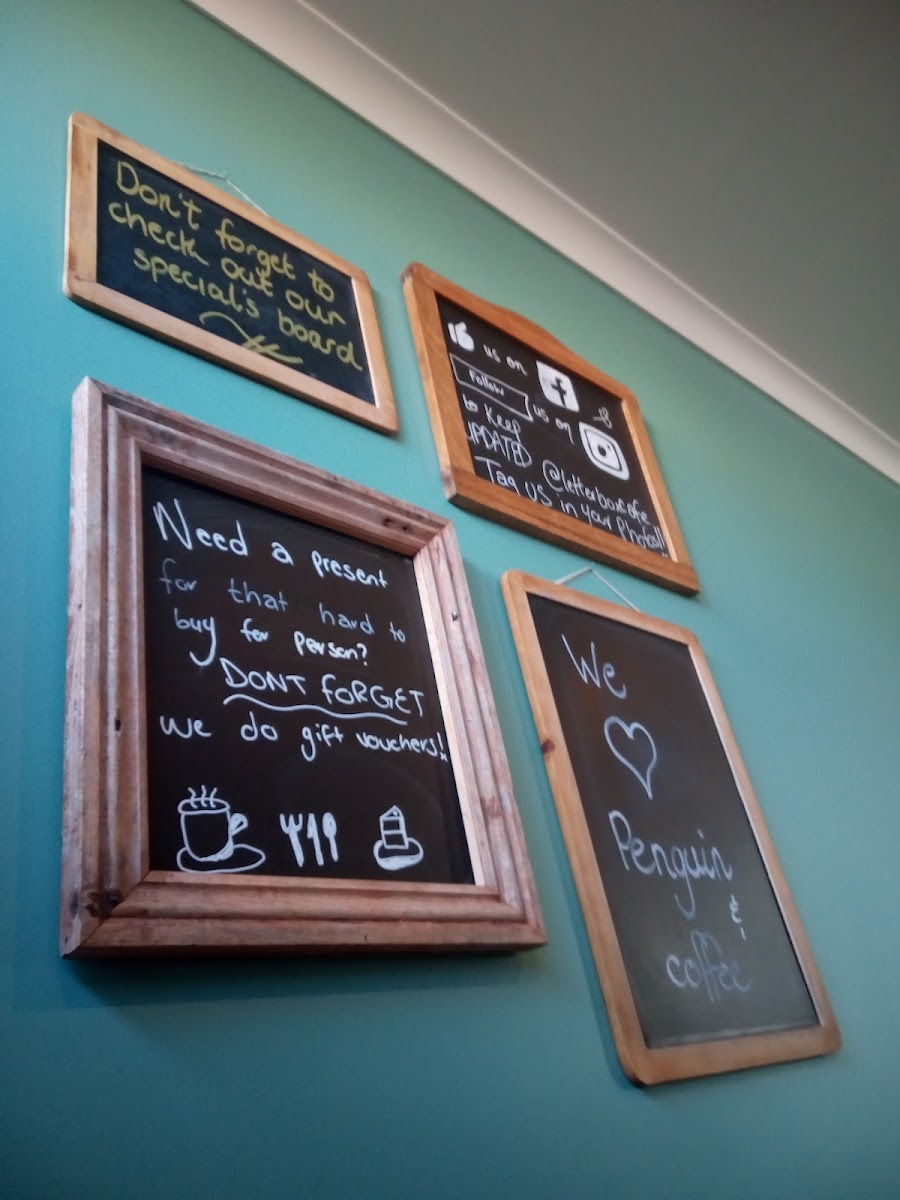 Don't forget to
check out our
special's board
us on f
Follow us on
to keep
UPDATED @letterboxcafe
Tag us in your photos!!
Need a present
for that hard to
buy for person?
DONT FORGET
we do gift vouchers!
We
Penguin
&
coffee